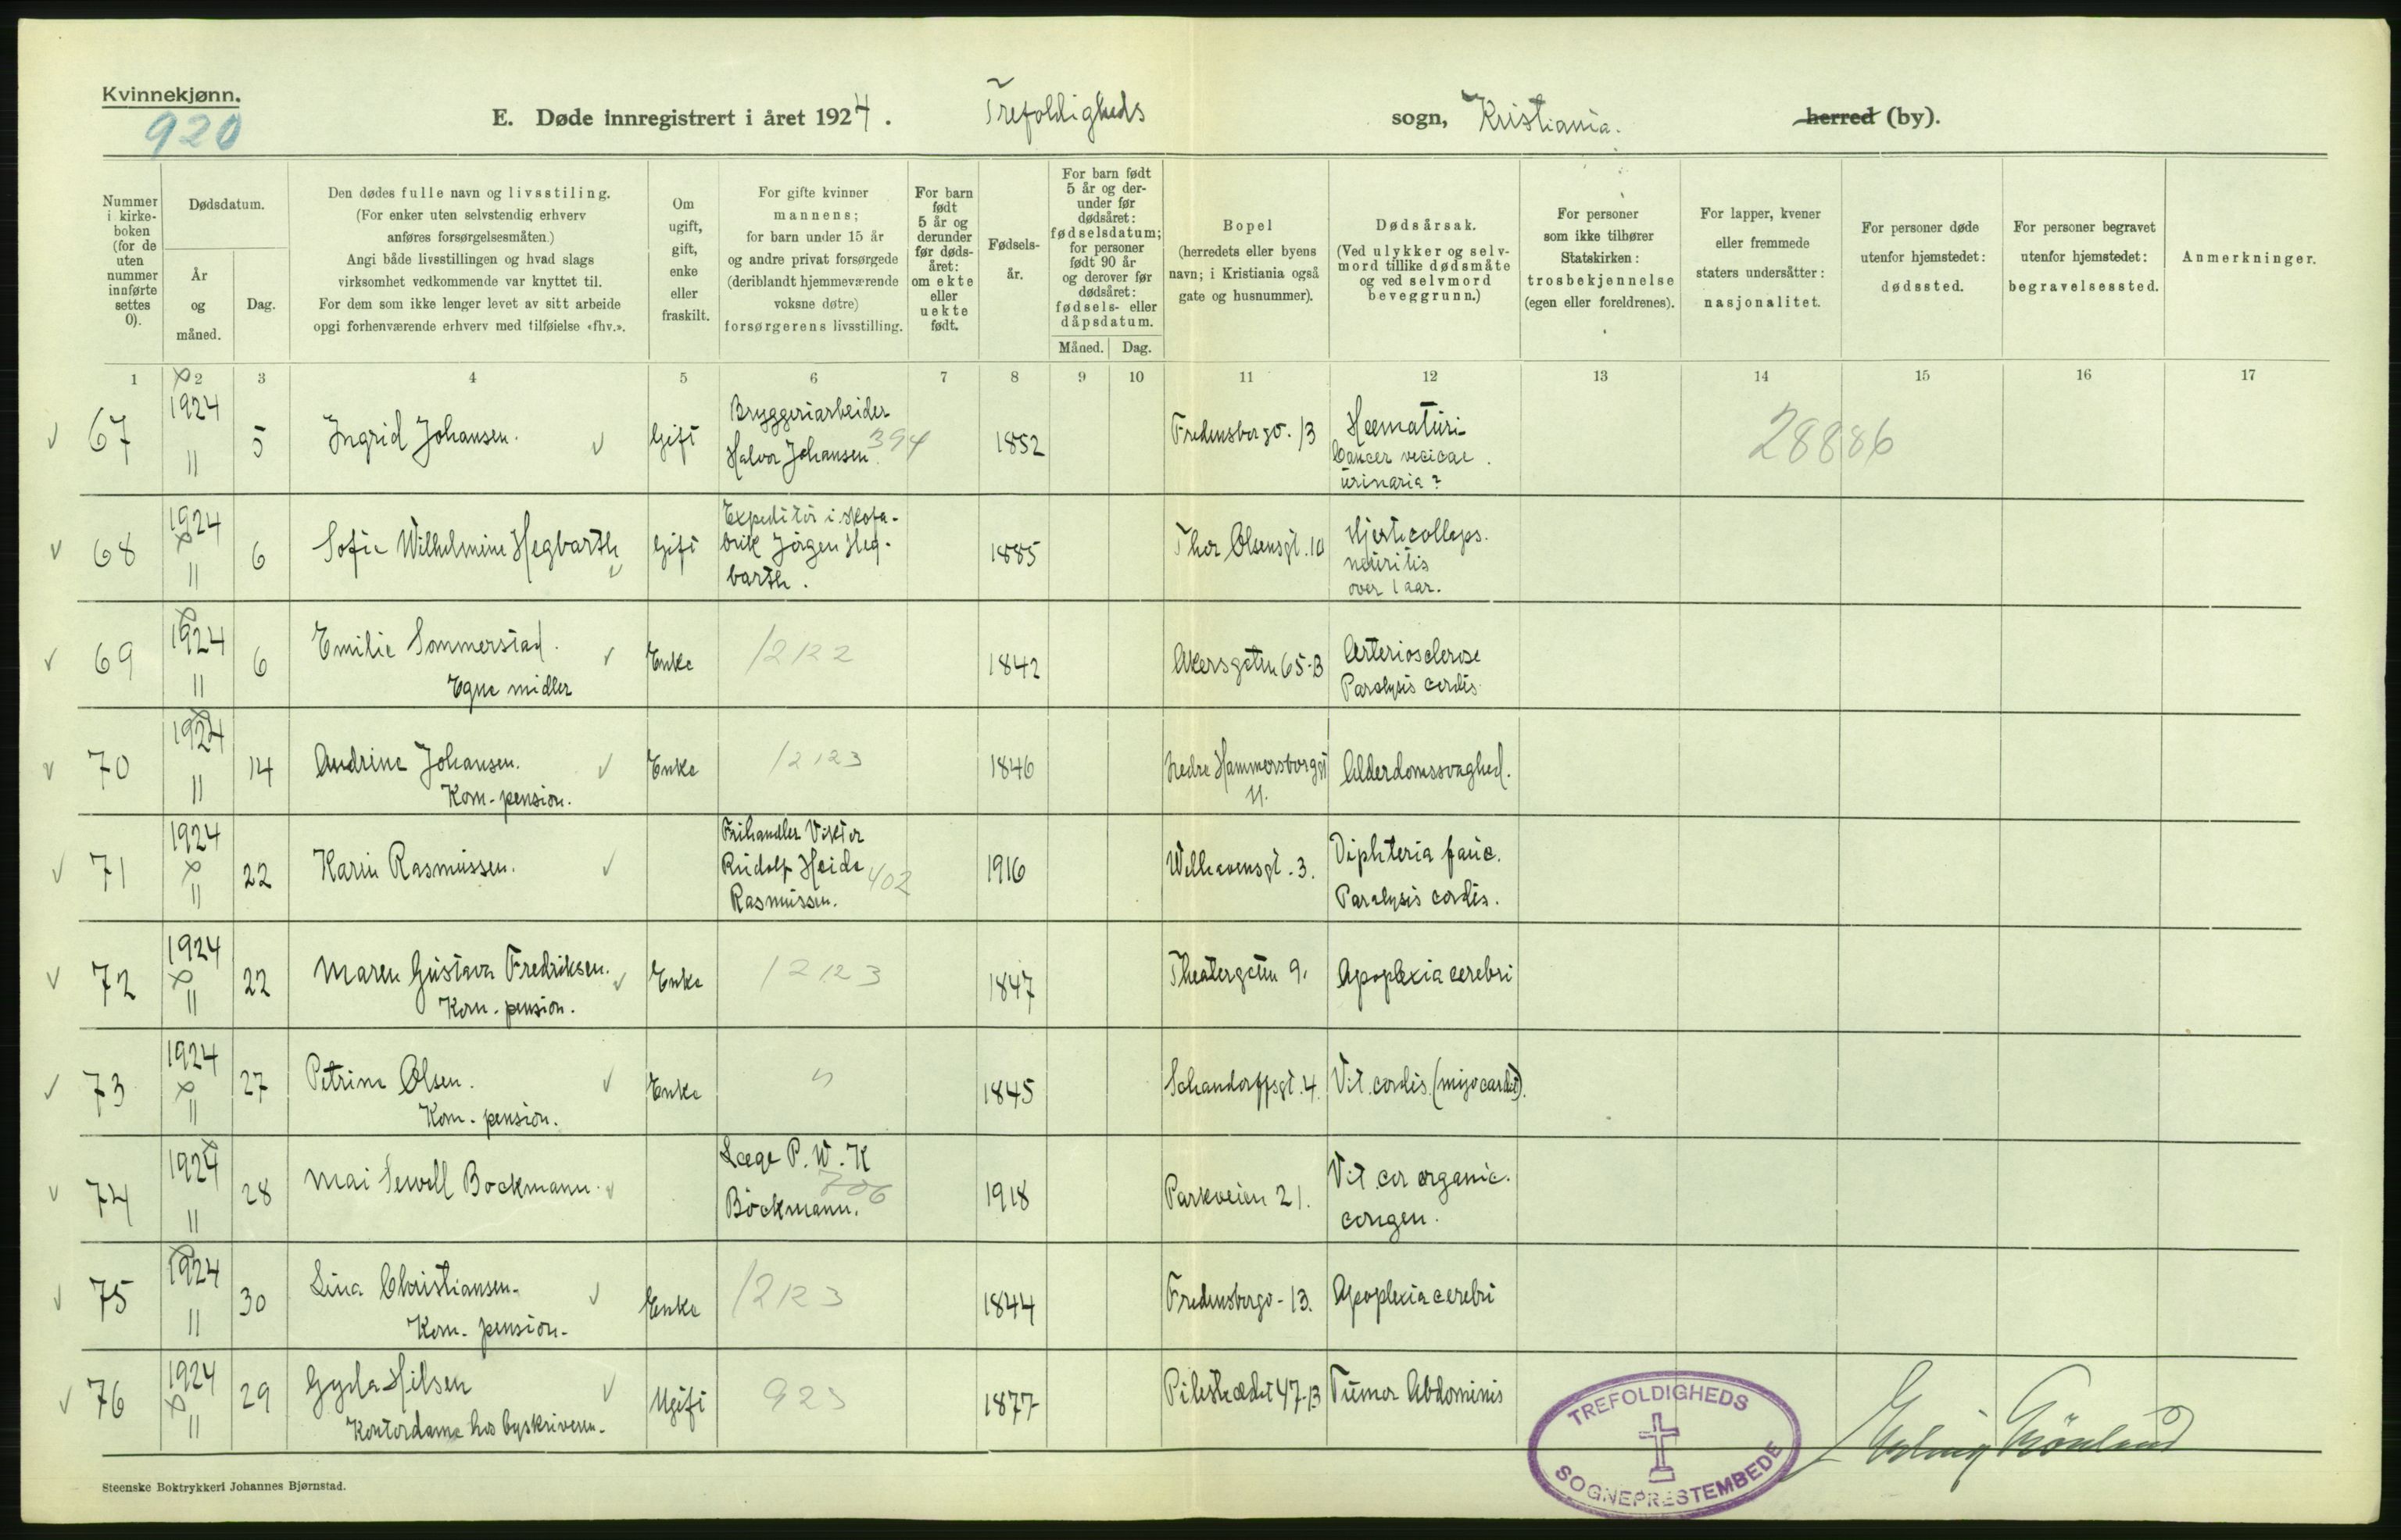 Kvinnekjønn.
920
E. Døde innregistrert i året 1924. Trefoldigheds sogn, Kristiania. herred (by).
Nummer i kirke- boken (for de uten nummer innførte settes 0).
Dødsdatum.
År og måned.
Dag.
Den dødes fulle navn og livsstiling.
(For enker uten selvstendig erhverv
anføres forsørgelsesmåten.)
Angi både livsstillingen og hvad slags
virksomhet vedkommende var knyttet til.
For dem som ikke lenger levet av sitt arbeide
opgi forhenværende erhverv med tilføielse «fhv.».
Om ugift, gift, enke eller fraskilt.
For gifte kvinner
mannens;
for barn under 15 år
og andre privat forsørgede
(deriblandt hjemmeværende
voksne døtre)
forsørgerens livsstilling.
For barn født 5 år og derunder før døds- året: om ekte eller uekte født.
Fødsels- år.
For barn født 5 år og der- under før dødsåret: fødselsdatum; for personer født 90 år og derover før dødsåret: fødsels- eller dåpsdatum.
Måned. Dag.
Bopel
(herredets eller byens
navn; i Kristiania også
gate og husnummer).
Dødsårsak.
(Ved ulykker og selv-
mord tillike dødsmåte
og ved selvmord
beveggrunn.)
For personer
som ikke tilhører
Statskirken:
trosbekjennelse
(egen eller foreldrenes).
For lapper, kvener
eller fremmede
staters undersåtter:
nasjonalitet.
For personer døde
utenfor hjemstedet:
dødssted.
For personer begravet
utenfor hjemstedet:
begravelsessted.
Anmerkninger.
1 2 3 4 5 6 7 8 9 10 11 12 13 14 15 16 17
67 1924 11 5 Ingrid Johansen. Gift Bryggeriarbeider Halvor Johansen 394 1852 Fredensborgv. 13 Hæmaturi Cancer vecicae urinaria? 28886
68 1924 11 6 Sofie Wilhelmine Hegbarth Gift Expeditör i skofabrik Jörgen Hegbarth. 1885 Thor Olsensgt. 10 Hjertecollaps. neuritis over 1 aar.
69 1924 11 6 Emilie Sommerstad. Egne midler Enke 12122 1842 Akersgaten 65-B Arteriosclerose Paralysis cordis.
70 1924 11 14 Andrine Johansen. Kom-pension. Enke 12123 1846 Nedre Hammersborggt 11. Alderdomssvaghed.
71 1924 11 22 Karin Rasmussen. Frihandler Viktor Rudolf Heide Rasmussen. 402 1916 Welhavensgt. 3. Diphteria fauc. Paralysis cordis.
72 1924 11 22 Maren Gustava Fredriksen. Kom-pension. Enke 12123 1847 Theatergaten 9. Apoplexia cerebri
73 1924 11 27 Petrine Olsen. Kom-pension. Enke " 1845 Schandorffsgt. 4. Vit. cordis. (myocardit).
74 1924 11 28 Mai Sewell Bockmann. Læge P. W. K Böckmann. 706 1918 Parkveien 21. Vit. cor organic. congen.
75 1924 11 30 Lina Christiansen. Kom-pension. Enke 12123 1844 Fredensborgv-13. Apoplexia cerebri
76 1924 11 29 Gyda Nilsen Kontordame hos byskriveren. Ugift 923 1877 Pilestrædet 47-B Tumor Abdominis
TREFOLDIGHEDS
SOGNEPRESTEMBEDE
Steenske Boktrykkeri Johannes Bjørnstad.